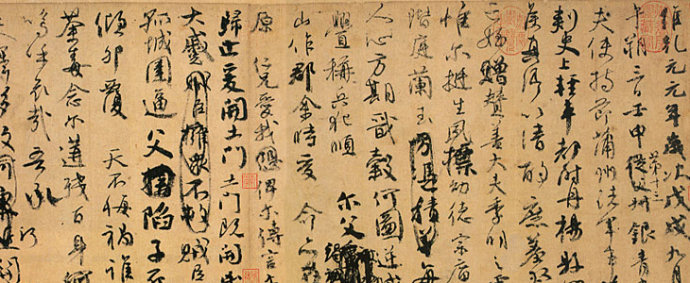 維乾元元年歲次戊戌九月
午朔三日壬申第十三叔銀青
夫使持節蒲州諸軍事
刺史上輕車都尉丹楊縣
侯真卿以清酌庶羞
亡姪贈贊善大夫季明之
惟爾挺生夙標幼德宗廟
階庭蘭玉方憑積善每
人心方期戩穀何圖逆賊
釁稱兵犯順爾父
山作郡余時受命
原仁兄愛我俾爾傳言
歸止爰開土門土門既開
大蹙賊臣擁眾不救
孤城圍逼父陷子死
傾卵覆天不悔禍誰
荼毒念爾遘殘百身
嗚呼哀哉吾承